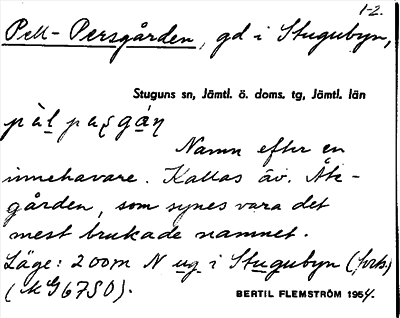 1-2.
Pell-Persgården, gd i Stugubyn,
Stuguns sn, Jämtl. ö. doms. tg, Jämtl. län
Namn efter en
innehavare. Kallas äv. Åk-
gården, som synes vara det
mest brukade namnet.
Läge: 200m N ug i Stugubyn (
BERTIL FLEMSTRÖM 1954.